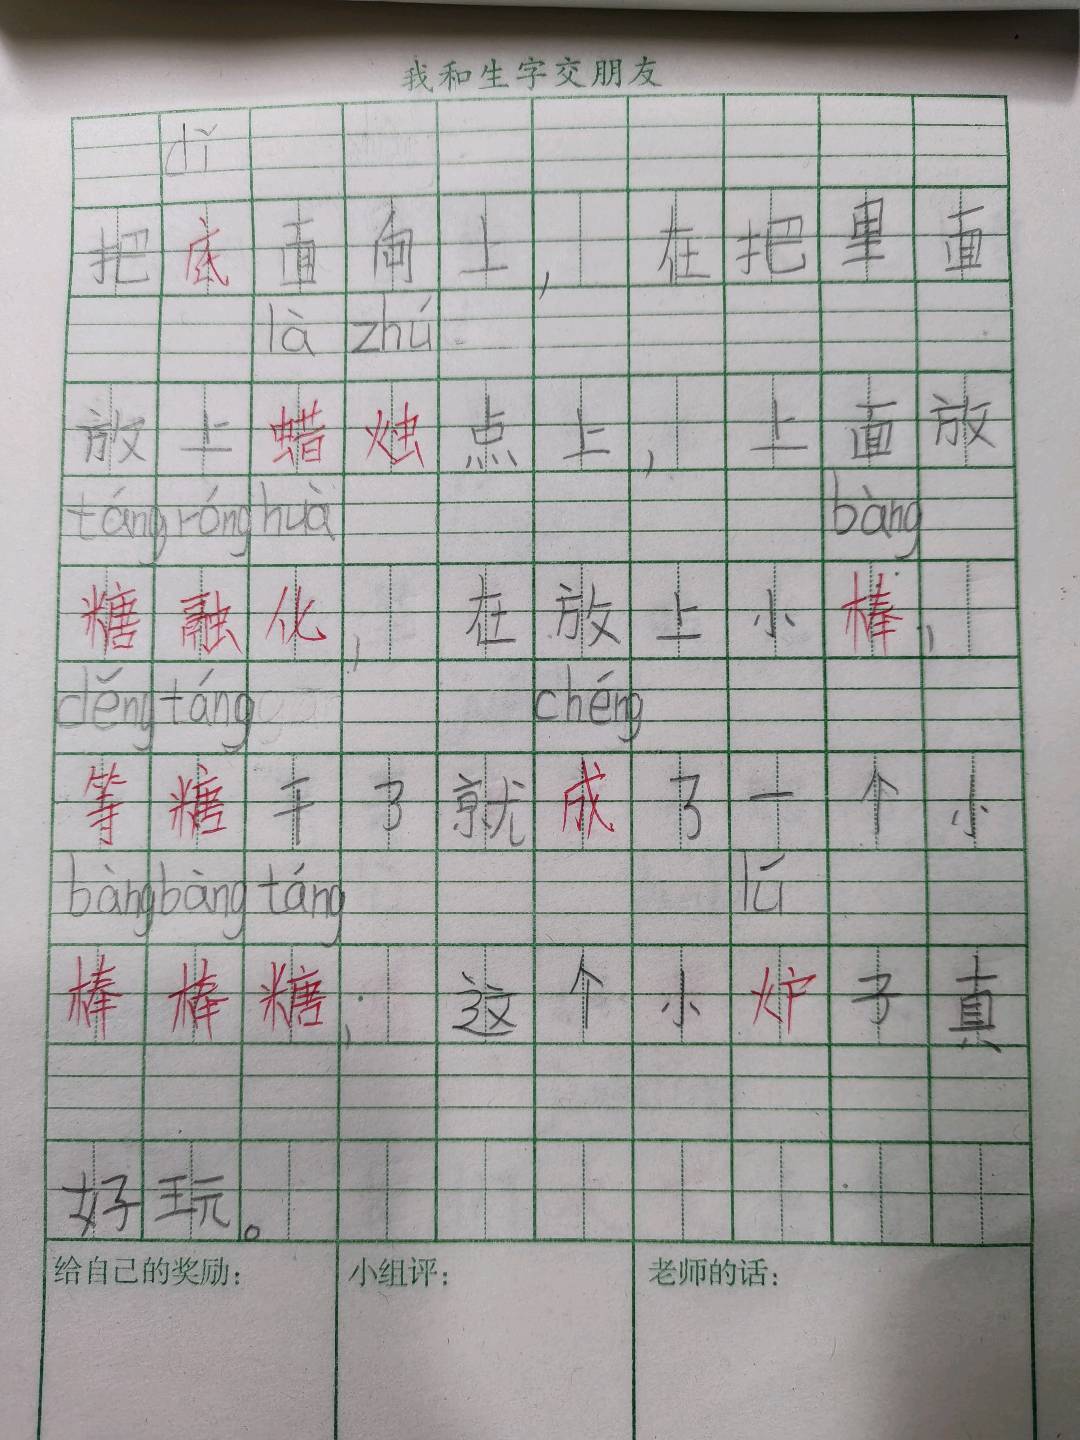 我和生字交朋友
dǐ
把底面向上，在把里面
là zhú
放上蜡烛点上，上面放
táng róng huà bàng
糖融化，在放上小棒，
děng táng chéng
等糖干了就成了一个小
bàng bàng táng lú
棒棒糖，这个小炉子真
好玩。
给自己的奖励： 小组评： 老师的话：